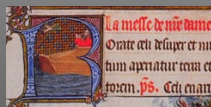 la messe de nře dame
Orate celi desuper et nu
tum aperiatur terra et
torem. ps. Celi enarr